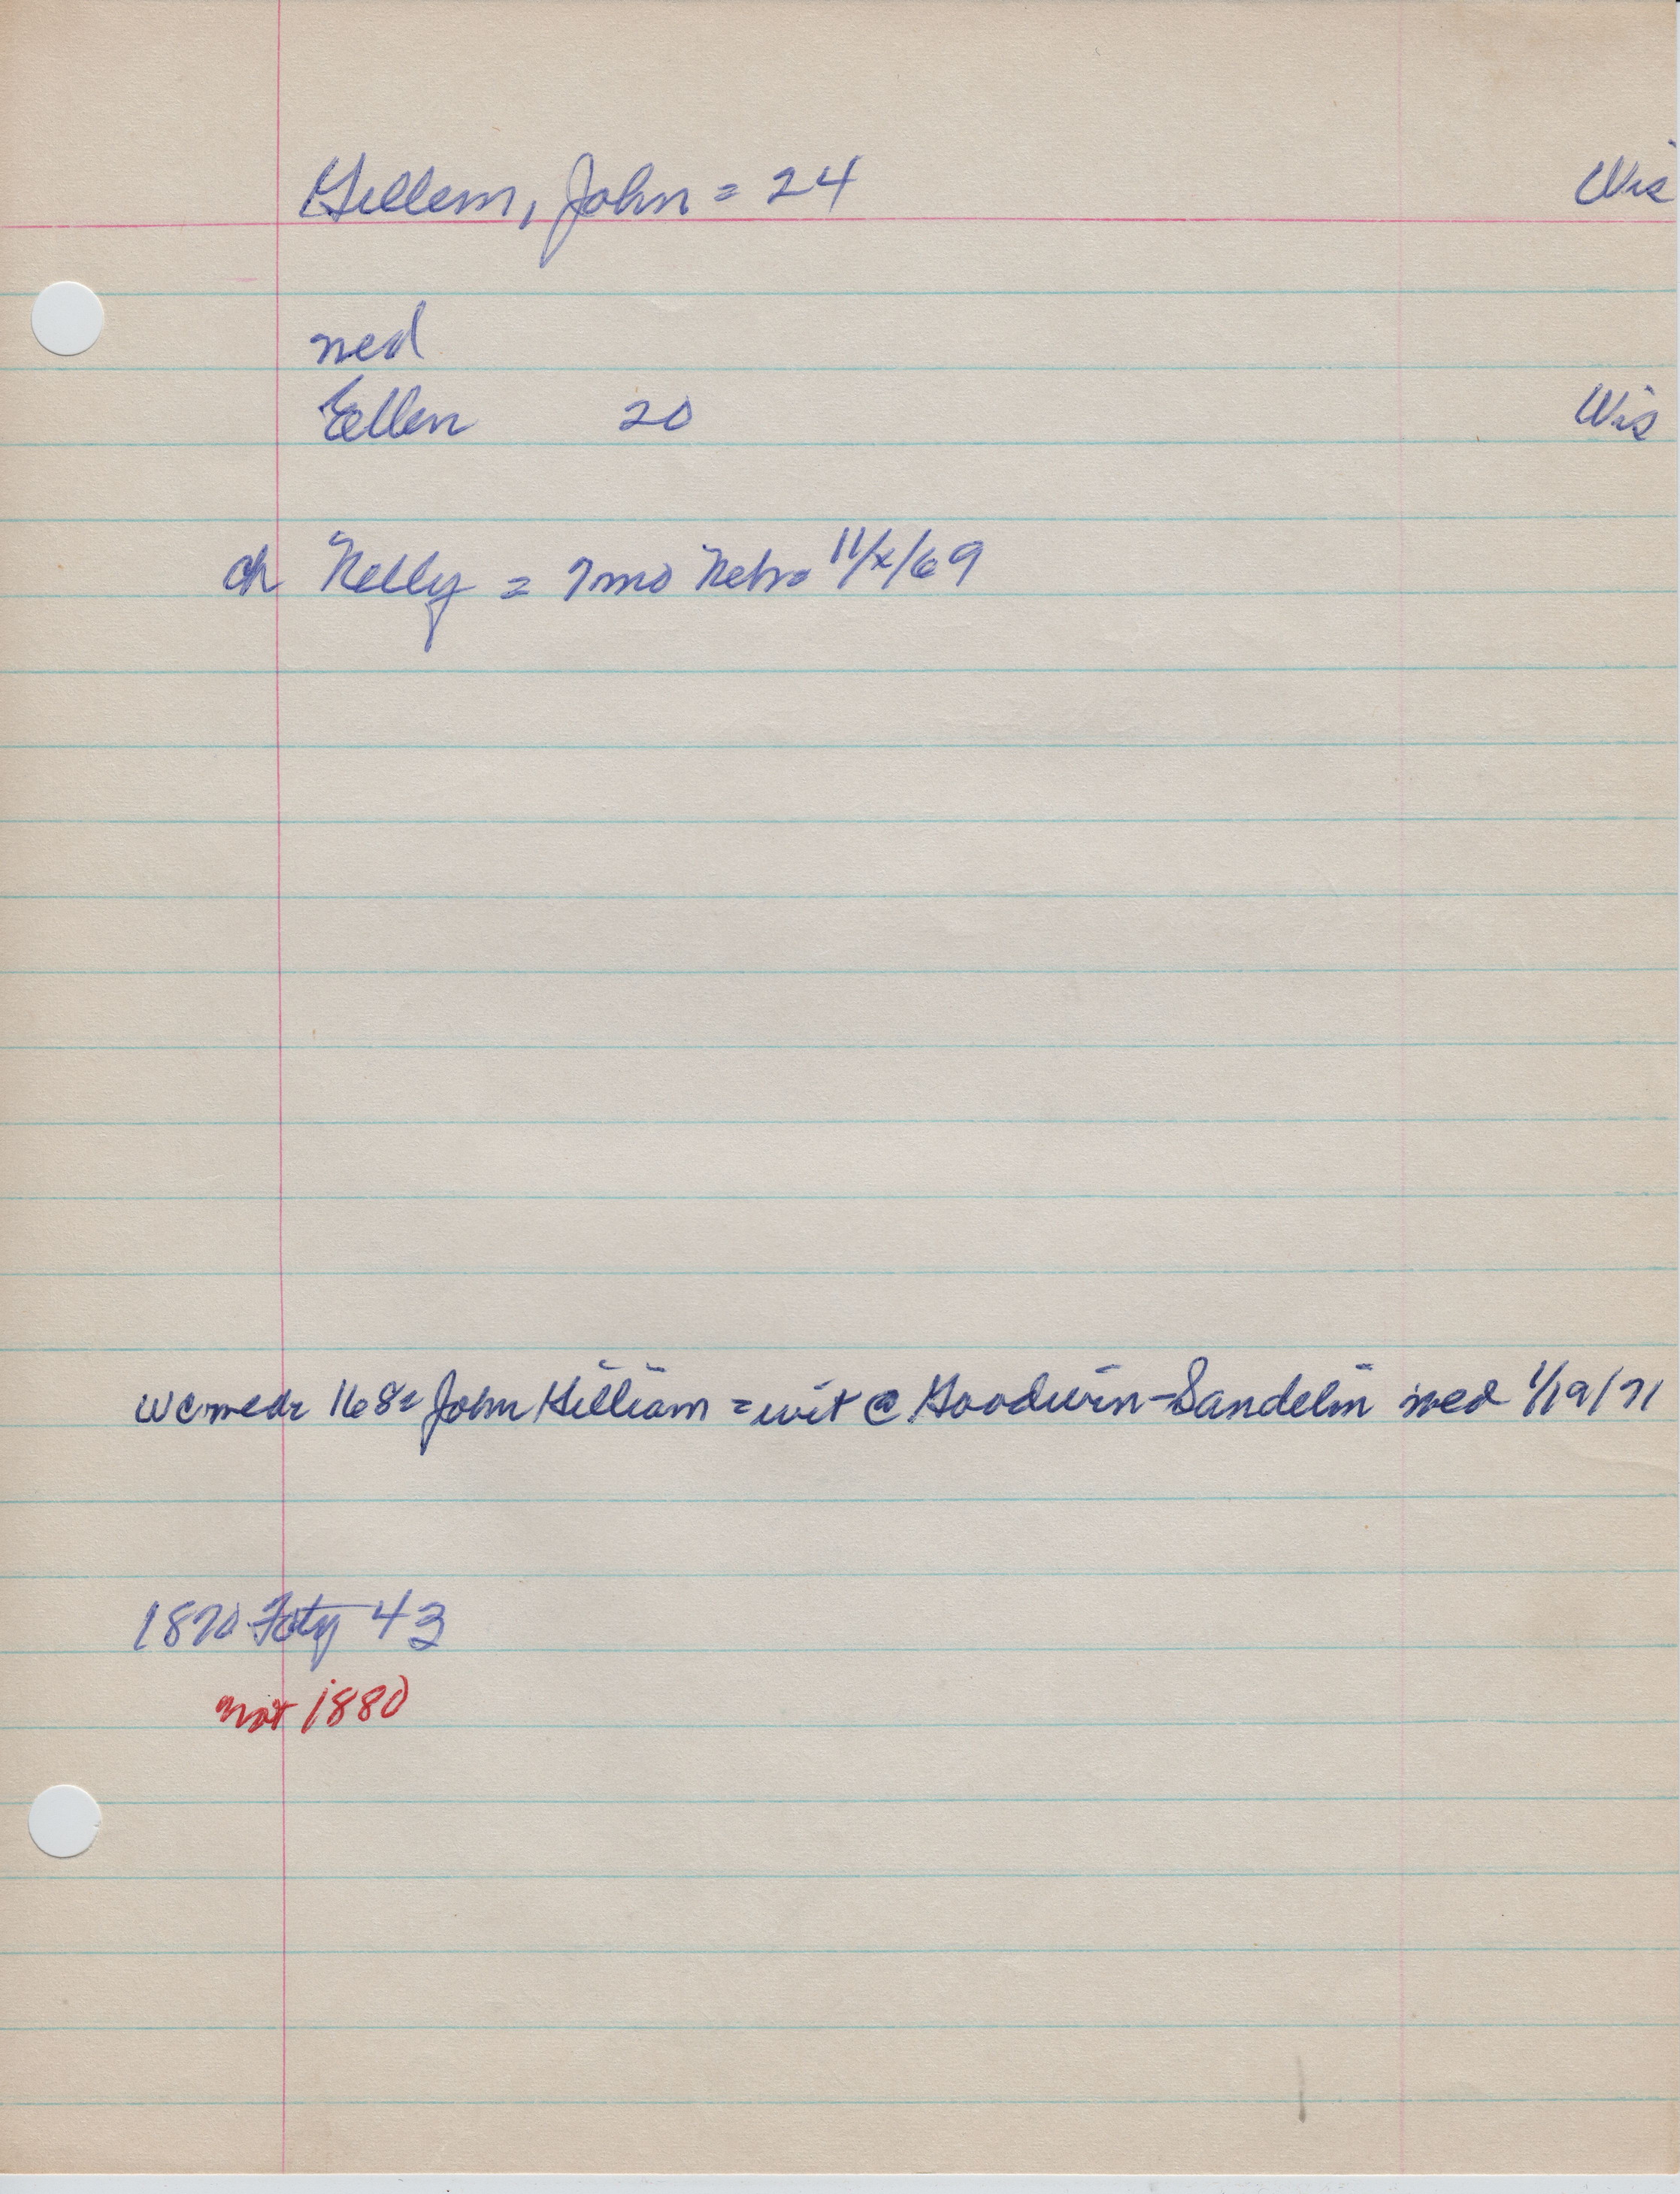 Gillem, John = 24 Wis
med
Ellen 20 Wis
ch Nelly = 7mo Nebr 11/x/69
wcmedr 168= John Gilliam = wit @ Goodwin-Sandelin med 1/19/71
1870 Foty 43
not 1880